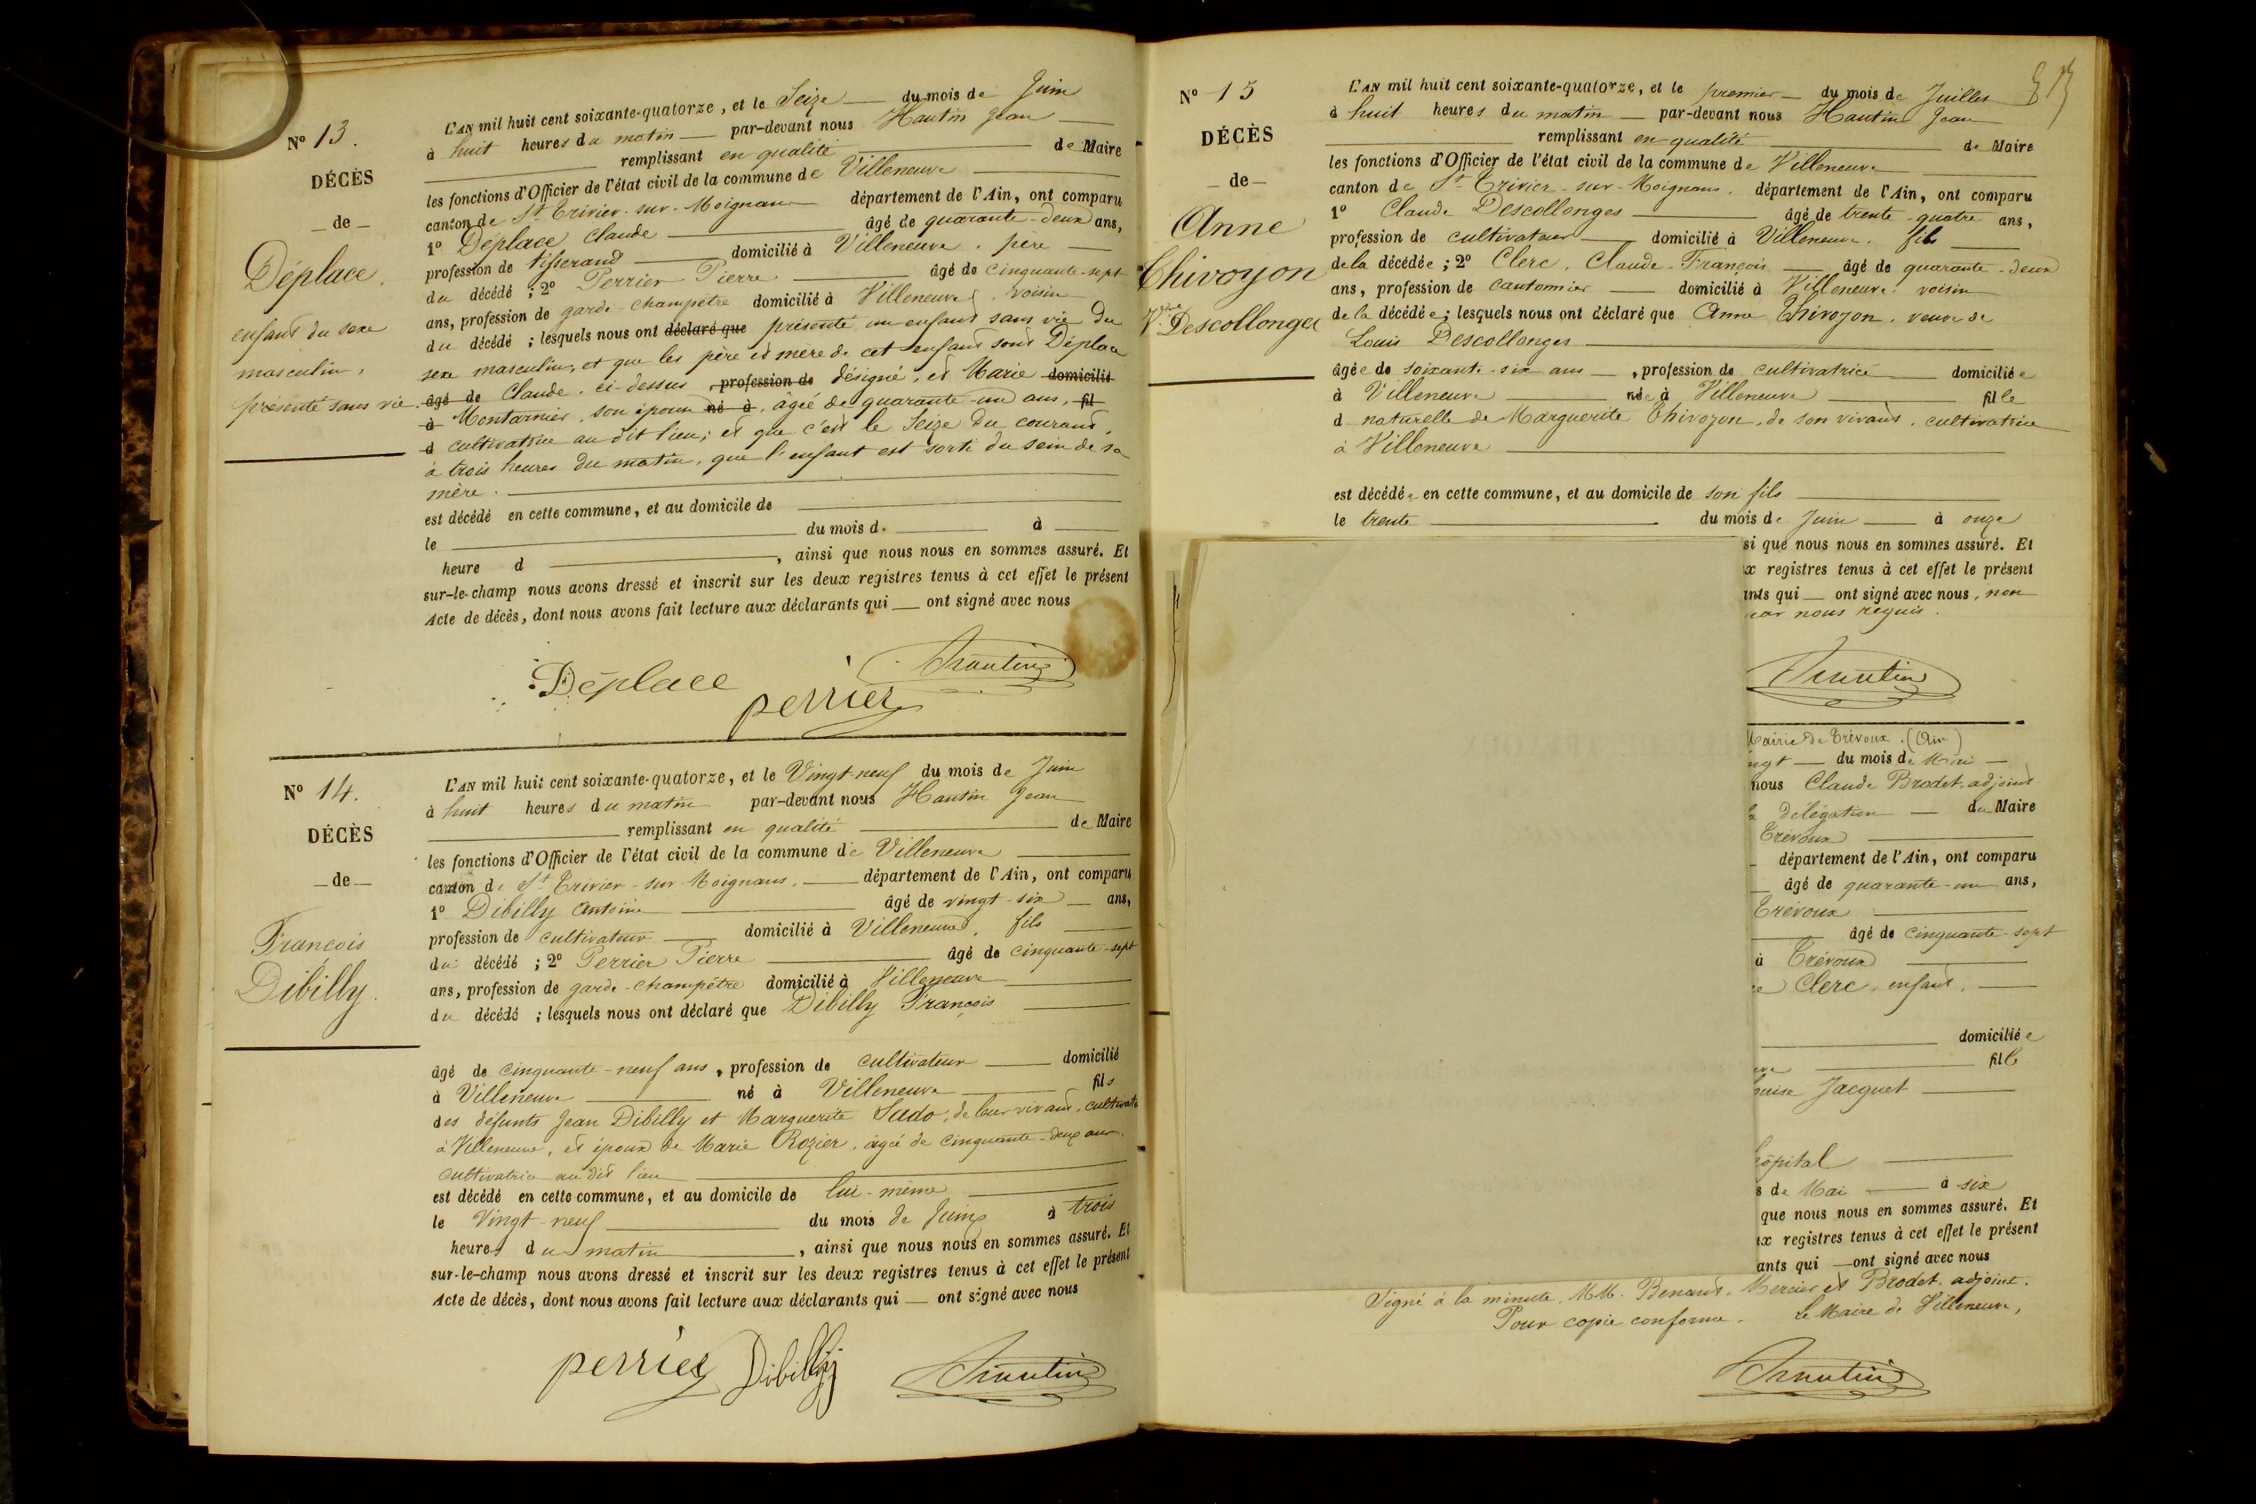 N° 13.
DÉCÈS
de
Déplace.
enfant du sexe
masculin,
présenté sans vie.
L'AN mil huit cent soixante-quatorze, et le Seize du mois de Juin
à huit heures du matin par-devant nous Hautin Jean
remplissant en qualité de Maire
les fonctions d'Officier de l'état civil de la commune de Villeneuve
canton de St Trivier-sur-Moignans département de l'Ain, ont comparu
1° Déplace Claude âgé de quarante-deux ans,
profession de tisserand domicilié à Villeneuve, père
du décédé ; 2° Perrier Pierre âgé de cinquante-sept
ans, profession de garde-champêtre domicilié à Villeneuve, voisin
du décédé ; lesquels nous ont déclaré que présenté un enfant sans vie du
sexe masculin, et que les père et mère de cet enfant sont Déplace
âgé de Claude, ci-dessus profession de désigné, et Marie domicilié
à Montarnier, son épouse né à, âgée de quarante-un ans, fil
d cultivatrice au dit lieu; et que c'est le Seize du courant,
à trois heures du matin, que l'enfant est sorti du sein de sa
mère.
est décédé en cette commune, et au domicile de
le du mois d. à
heure d , ainsi que nous nous en sommes assuré. Et
sur-le-champ nous avons dressé et inscrit sur les deux registres tenus à cet effet le présent
Acte de décès, dont nous avons fait lecture aux déclarants qui ont signé avec nous
Déplace perrier Hautin
N° 14.
DÉCÈS
de
François
Dibilly.
L'AN mil huit cent soixante-quatorze, et le Vingt-neuf du mois de Juin
à huit heures du matin par-devant nous Hautin Jean
remplissant en qualité de Maire
les fonctions d'Officier de l'état civil de la commune de Villeneuve
canton de St Trivier-sur-Moignans. département de l'Ain, ont comparu
1° Dibilly Antoine âgé de vingt-six ans,
profession de cultivateur domicilié à Villeneuve, fils
du décédé ; 2° Perrier Pierre âgé de cinquante-sept
ans, profession de garde-champêtre domicilié à Villeneuve
du décédé ; lesquels nous ont déclaré que Dibilly François
âgé de cinquante-neuf ans, profession de cultivateur domicilié
à Villeneuve né à Villeneuve fils
des défunts Jean Dibilly et Marguerite Sado, de leur vivant, cultivate
à Villeneuve, et époux de Marie Rozier, âgée de cinquante-deux ans,
cultivatrice au dit lieu
est décédé en cette commune, et au domicile de lui-même
le Vingt-neuf du mois de Juin à trois
heures du matin , ainsi que nous nous en sommes assuré. Et
sur-le-champ nous avons dressé et inscrit sur les deux registres tenus à cet effet le présent
Acte de décès, dont nous avons fait lecture aux déclarants qui ont signé avec nous
perrier Dibilly Hautin
N° 15
DÉCÈS
de
Anne
Thivoyon
Vve Descollonges
L'AN mil huit cent soixante-quatorze, et le premier du mois de Juillet
à huit heures du matin par-devant nous Hautin Jean
remplissant en qualité de Maire
les fonctions d'Officier de l'état civil de la commune de Villeneuve
canton de St-Trivier-sur-Moignans. département de l'Ain, ont comparu
1° Claude Descollonges âgé de trente-quatre ans,
profession de cultivateur domicilié à Villeneuve. fils
de la décédée ; 2° Clerc, Claude-François âgé de quarante-deux
ans, profession de cantonnier domicilié à Villeneuve. voisin
de la décédée ; lesquels nous ont déclaré que Anne Thivoyon, veuve de
Louis Descollonges
âgée de soixante-six ans, profession de cultivatrice domiciliée
à Villeneuve née à Villeneuve fille
d naturelle de Marguerite Thivoyon, de son vivant, cultivatrice
à Villeneuve
est décédée en cette commune, et au domicile de son fils
le trente du mois de Juin à onze
si que nous nous en sommes assuré. Et
x registres tenus à cet effet le présent
ants qui ont signé avec nous, non
par nous requis.
Hautin
Mairie de Trévoux. (Ain)
ngt du mois de Mai
nous Claude Brodet adjoint
délégation du Maire
Trévoux
département de l'Ain, ont comparu
âgé de quarante-un ans,
Trévoux
âgé de cinquante-sept
à Trévoux
Clerc, enfant,
domiciliée
fille
ouise Jacquet
hôpital
s de Mai à six
que nous nous en sommes assuré. Et
ux registres tenus à cet effet le présent
ants qui ont signé avec nous
Signé à la minute. MM. Benand, Mercier et Brodet adjoint.
Pour copie conforme. Le Maire de Villeneuve,
Hautin